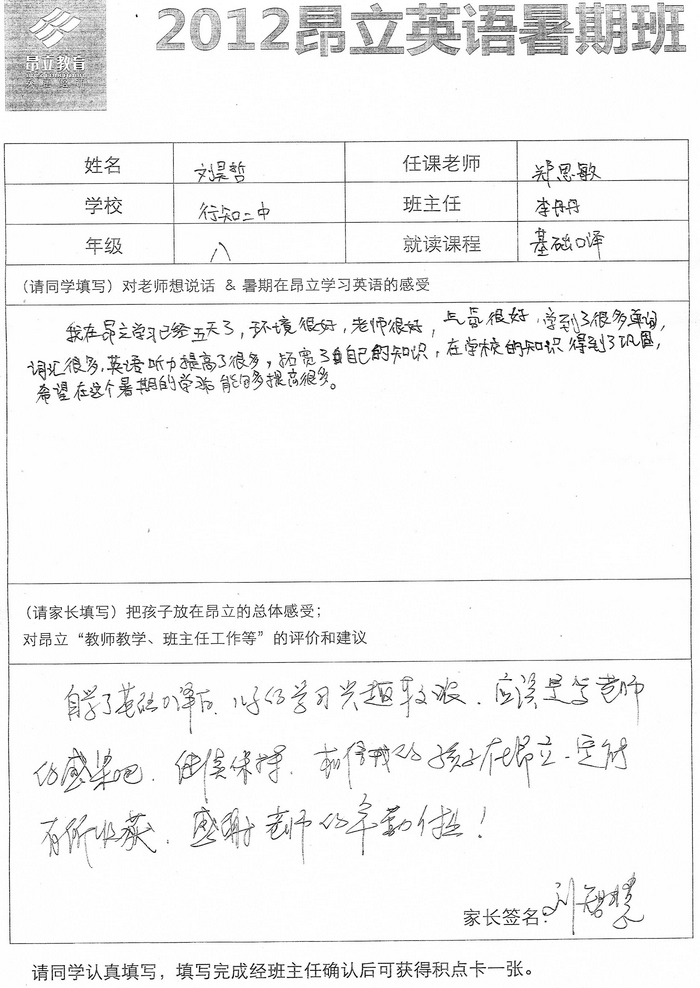 昂立教育
2012昂立英语暑期班
姓名 刘昊哲 任课老师 郑思敏
学校 行知二中 班主任 李丹丹
年级 八 就读课程 基础口译
(请同学填写) 对老师想说话 & 暑期在昂立学习英语的感受
我在昂立学习已经五天了,环境很好,老师很好,气氛很好,学到了很多单词,
词汇很多,英语听力提高了很多,拓宽了自己的知识,在学校的知识得到了巩固,
希望在这个暑期的学习能够多提高很多。
(请家长填写) 把孩子放在昂立的总体感受;
对昂立“教师教学、班主任工作等”的评价和建议
自学了基础口译后,儿子的学习兴趣较浓,应该是受老师
的感染吧,继续保持,相信我的孩子在昂立一定能
有所收获,感谢老师的辛勤付出!
家长签名: 刘智慧
请同学认真填写,填写完成经班主任确认后可获得积点卡一张。